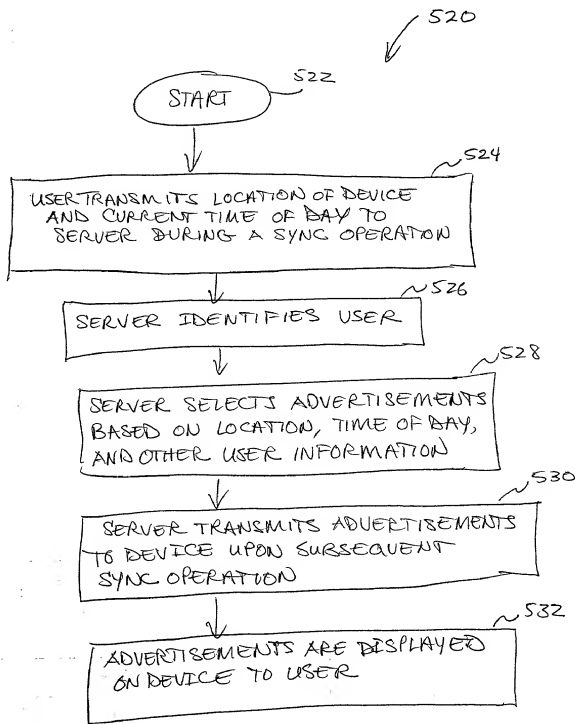 520
522
START
524
USER TRANSMITS LOCATION OF DEVICE
AND CURRENT TIME OF DAY TO
SERVER DURING A SYNC OPERATION
526
SERVER IDENTIFIES USER
528
SERVER SELECTS ADVERTISEMENTS
BASED ON LOCATION, TIME OF DAY,
AND OTHER USER INFORMATION
530
SERVER TRANSMITS ADVERTISEMENTS
TO DEVICE UPON SUBSEQUENT
SYNC OPERATION
532
ADVERTISEMENTS ARE DISPLAYED
ON DEVICE TO USER